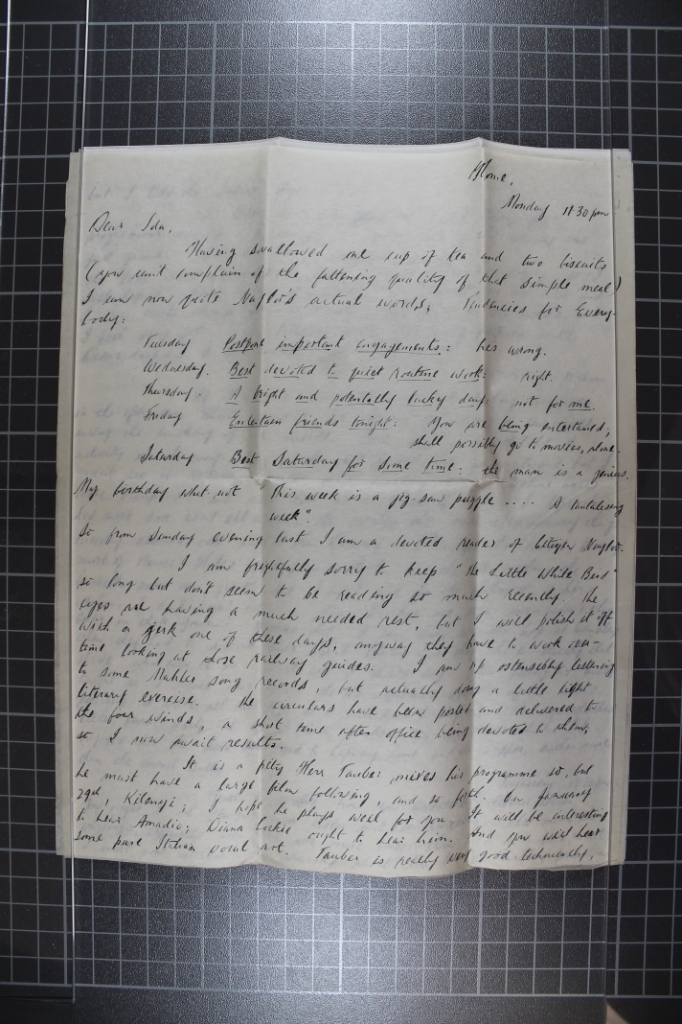 Home,
Monday 11.30 pm
Dear Ida,
Having swallowed one cup of tea and two biscuits
(you can't complain of the fattening quality of that simple meal)
I can now quote Naylor's actual words; tendencies for Every-
body:
Tuesday Postpone important engagements: he's wrong.
Wednesday. Best devoted to quiet routine work: right.
Thursday. A bright and potentially lucky day: not for me.
Friday Entertain friends tonight: You are being entertained;
shall possibly go to movies, alone.
Saturday Best Saturday for some time: the man is a genius.
My birthday what not "This week is a jig-saw puzzle .... A tantalising
week".
So from Sunday evening last I am a devoted reader of Naylor.
I am frightfully sorry to keep "The Little White Bird"
so long but don't seem to be reading so much recently, the
eyes are having a much needed rest, but I will polish it off
with a jerk one of these days, anyway they have to work over-
time looking at those railway guides. I am up ostensibly listening
to some Mahler song records, but actually doing a little light
literary exercise. The circulars have been posted and delivered to
the four winds, a short time after office being devoted to them,
so I now await results.
It is a pity Herr Tauber mixes his programme so, but
he must have a large film following, and so forth. On January
2nd, Kilenyi; I hope he plays well for you. It will be interesting
to hear Amadio; Diana ought to hear him. And you will hear
some pure Italian vocal art. Tauber is really very good technically,